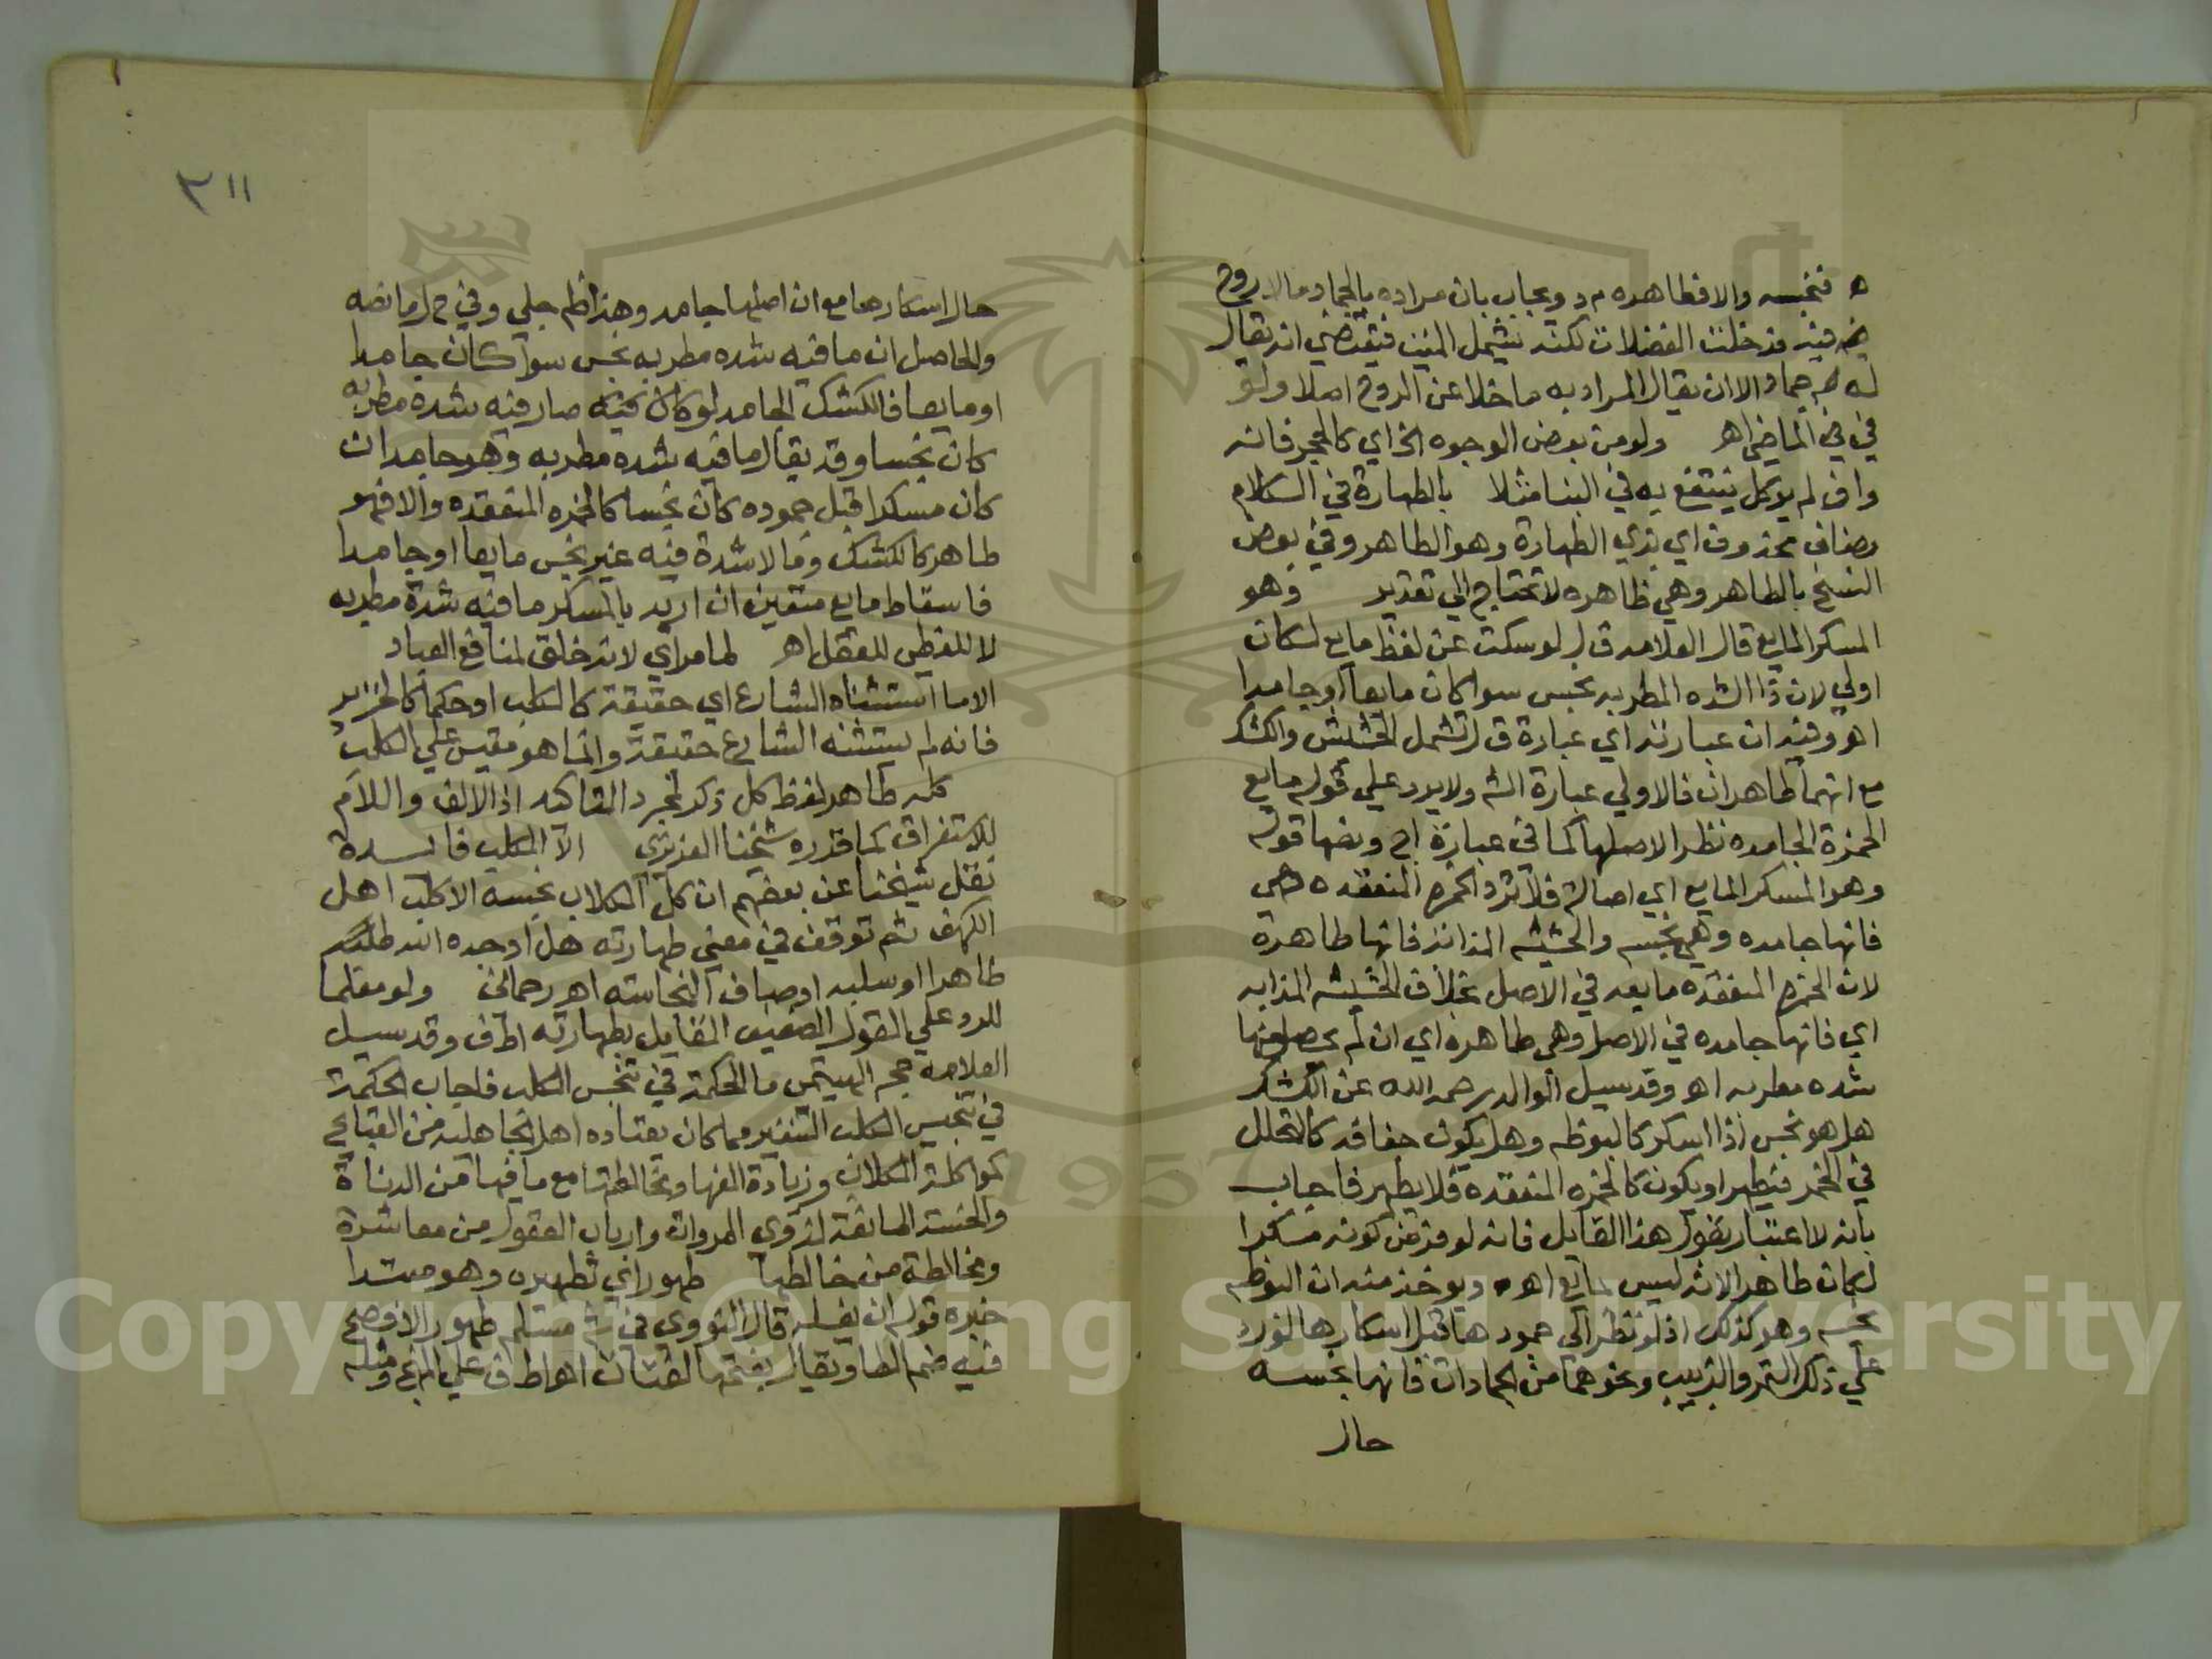 فنجسه والا فطاهره م د ويجاب بان مراده بالجماد مالا روح
فيه فدخلت الفضلات لكنه يشمل الميت فيقتضي انه يقال
له جماد الا ان يقال المراد به ما خلا عن الروح اصلا ولو
في الماضي اه ولو من بعض الوجوه الخ اي كالحجر فانه
وان لم يوكل ينتفع به في البنا مثلا بالطهارة في الكلام
مضاف محذوف اي بذي الطهارة وهو الطاهر وفي بعض
النسخ بالطاهر وهي ظاهره لا تحتاج الي تقدير وهو
المسكر المايع قال العلامه ق ل لو سكت عن لفظ مايع لكان
اولي لان ذا الشده المطربه نجس سوا كان مايعا او جامدا
اه وفيه ان عبارته اي عبارة ق ل تشمل الحشيش والكشك
مع انهما طاهران فالاولي عبارة الش ولا يرد علي قوله مايع
الخمرة الجامده نظرا لاصلها كما في عبارة اج ونصها قوله
وهو المسكر المايع اي اصالة فلا ترد الخمره المنعقده
فانها جامده وهي نجسه والحشيشه المذابة فانها طاهرة
لان الخمره المنعقده مايعه في الاصل بخلاف الحشيشه المذابه
اي فانها جامده في الاصل وهي طاهره اي ان لم يحصل فيها
شده مطربه اه وقد سيل الوالد رحمه الله عن الكشك
هل هو نجس اذا اسكر كالبوظه وهل يكون جفافه كالتخلل
في الخمر فيطهر او يكون كالخمره المنعقده فلا يطهر فاجاب
بانه لا اعتبار بقول هذا القايل فانه لو فرض كونه مسكرا
لكان طاهرا لانه ليس بمايع اه ويوخذ منه ان البوظه
نجسه وهو كذلك اذ لو نظر الي جمودها قبل اسكارها لورد
علي ذلك التمر والزبيب ونحوهما من الجمادات فانها نجسه
حال
٣١١
حال اسكارها مع ان اصلها جامد وهذا ظ جلي وفي م ر ما نصه
والحاصل ان ما فيه شده مطربه نجس سوا كان جامدا
او مايعا فالكشك الجامد لو كان صار فيه شده مطربه
كان نجسا وقد يقال ما فيه شده مطربه وهو جامد ان
كان مسكرا قبل جموده كان نجسا كالخمره المنعقده والا فهو
طاهر كالكشك وما لا شدة فيه غير نجس مايعا او جامدا
فاسقاط مايع متعين ان اريد بالمسكر ما فيه شدة مطربه
لا المغطي للعقل اه لما مر اي لانه خلق لمنافع العباد
الا ما استثناه الشارع اي حقيقة كالكلب او حكما كالخنزير
فانه لم يستثنه الشارع حقيقة وانما هو مقيس علي الكلب
كله طاهر لفظ كل ذكر لمجرد التاكيد اذ الالف واللام
للاستغراق كما قرره شيخنا العزيزي الا الكلب فايدة
نقل شيخنا عن بعضهم ان كل الكلاب نجسه الا كلب اهل
الكهف ثم توقف في معني طهارته هل اوجده الله
طاهرا او سلبه اوصاف النجاسه اه رحماني ولو معلما
للرد علي القول الضعيف القايل بطهارته اط ف وقد سيل
العلامه حجر الهيتمي ما الحكمة في تنجس الكلب فاجاب الحكمة
في تنجيس الكلب التنفير مما كان يعتاده اهل الجاهليه من القبايح
كمواكلة الكلاب وزيادة الفها ومخالطتها مع ما فيها من الدناة
والخسة المانعة لذوي المروات وارباب العقول من معاشرة
ومخالطة من خالطها طهور اي تطهيره وهو مبتدا
خبره قوله ان يغسله قال النووي في ش مسلم طهور الافصح
فيه ضم الطا ويقال بفتحها لغتان اه اط ف علي المنهج ومثله